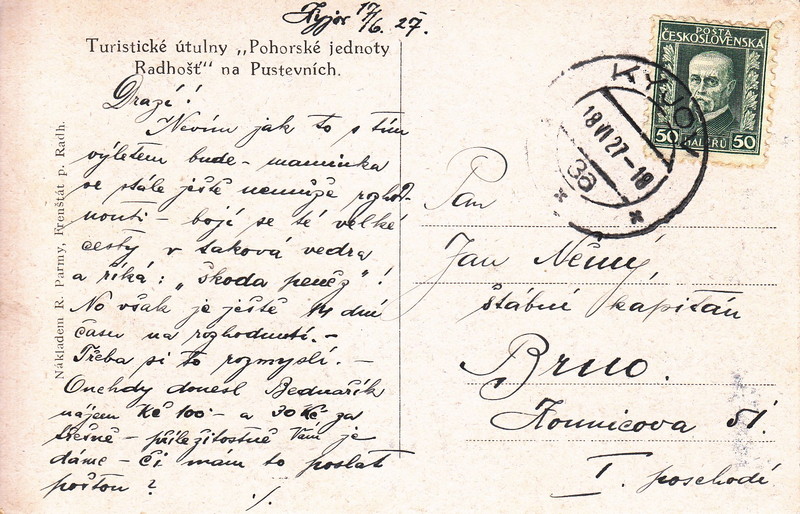 Kyjov 17/6. 27.
Turistické útulny „Pohorské jednoty
Radhošť" na Pustevních.
Drazí!
Nevím jak to s tím
výletem bude - maminka
se stále ještě nemůže rozhod-
nouti - bojí se té velké
cesty v taková vedra
a říká: „škoda peněz"!
No však je ještě 14 dní
času na rozhodnutí. -
Třeba si to rozmyslí. -
Onehdy donesl Bednařík
nájem Kč 100·- a 30 Kč za
třešně - příležitostně Vám je
dáme - či mám to poslat
poštou?
·/.
Nákladem R. Parmy, Frenštát p. Radh.
POŠTA
ČESKOSLOVENSKÁ
50 HALÉŘŮ 50
KYJOV
18 VI 27 - 18
3a
Pan
Jan Němý,
štábní kapitán
Brno.
Kounicova 51.
I. poschodí